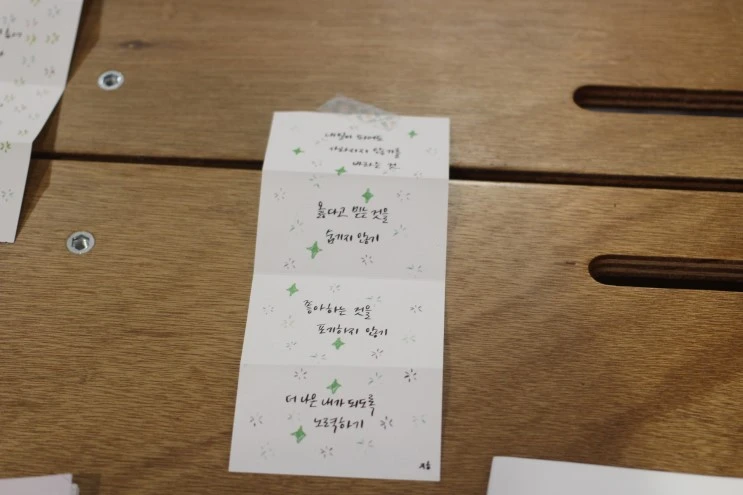 내일이 되어도
사라지지 않기를
바라는 것
옳다고 믿는 것을
숨기지 않기
좋아하는 것을
포기하지 않기
더 나은 내가 되도록
노력하기